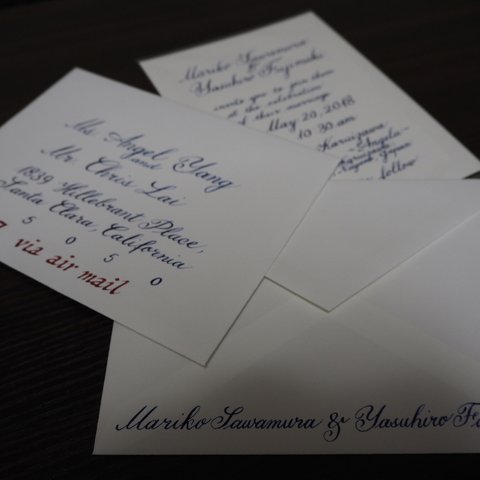 Mariko Sawamura
&
Yasuhiro Fujimaki
invite you to join them
at the celebration
of their marriage
May 20, 2018
10:30 am
Karuizawa
Angela
Karuizawa
Nagano Japan
follow
Ms. Angel Yang
and
Mr. Chris Lai
1839 Hillebrant Place,
Santa Clara, California
5 0 5 0
via air mail
Mariko Sawamura & Yasuhiro